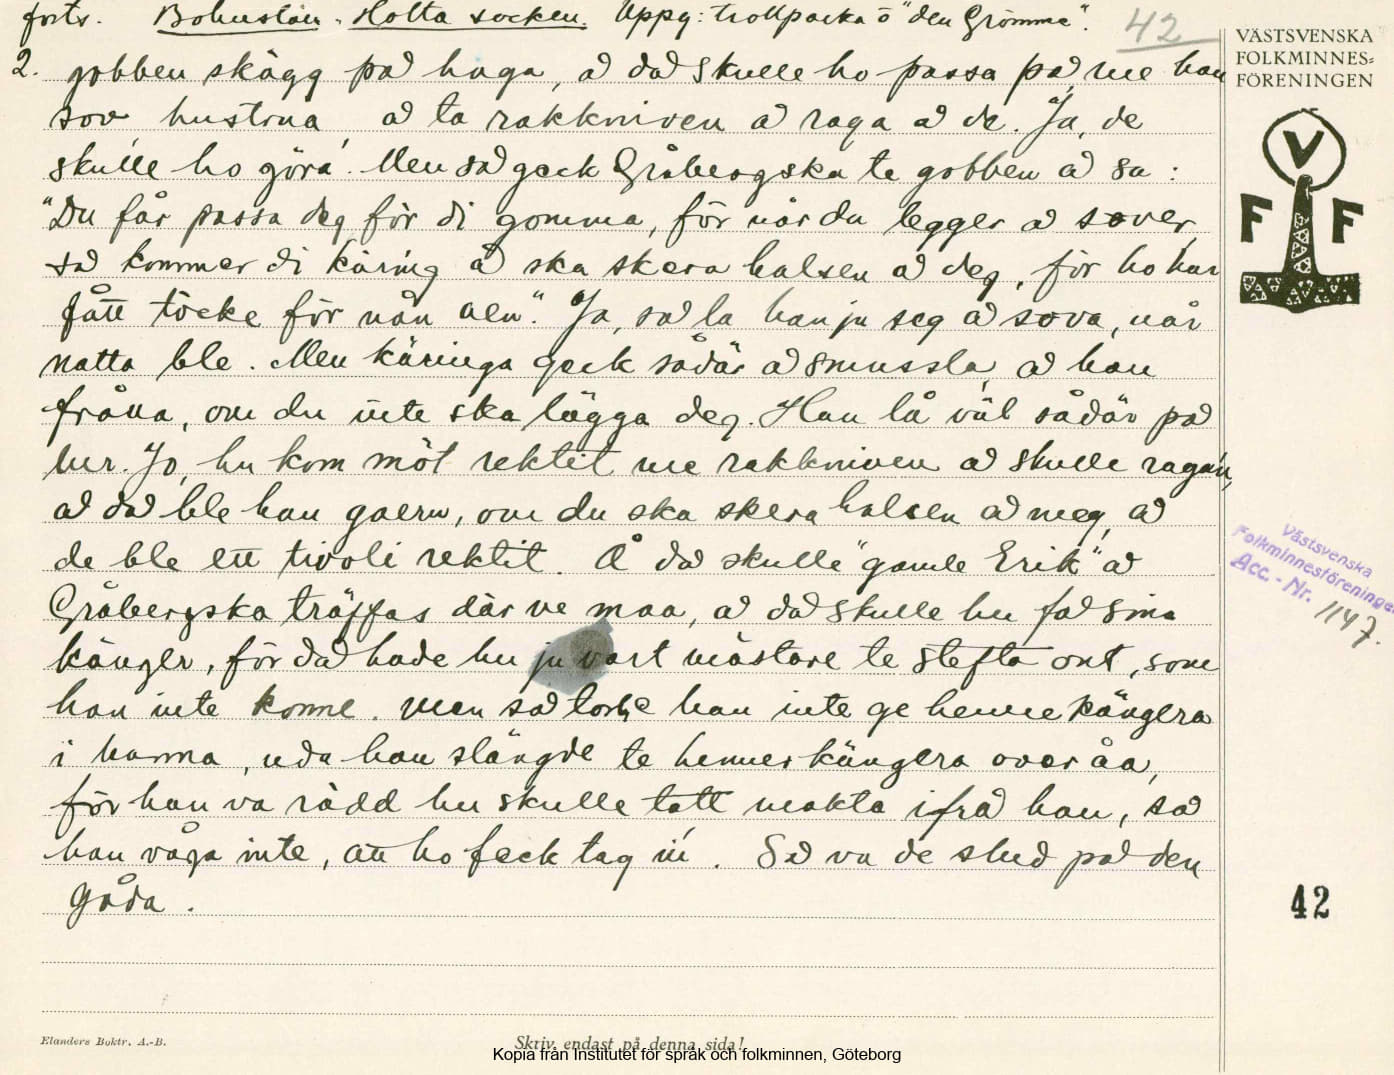 forts. Bohuslän. Holta socken. Uppg: trollpacka o "den Grömme". 42
VÄSTSVENSKA
FOLKMINNES=
FÖRENINGEN
2. gobben skägg på haga, å då skulle ho passa på, me han
sov, hustrua, å ta rakkniven å raga å de. Ja, de
skulle ho göra. Men så geck Gråbergska te gobben å sa:
"Du får passa deg för di gomma, för når du legger å sover,
så kommer di käring å ska skera halsen å deg, för ho har
fått töcke för nån aen." Ja, så la han ju seg å sova, når
natta ble. Men käringa geck sådär å smussla, å han
fråna, om du inte ska lägga deg. Han lå väl sådär på
lur. Jo, hu kom möt rektit me rakkniven å skulle raga'n,
å då ble han galen, om du ska skera halsen å meg, å
de ble ett tivoli rektit. Å då skulle "gamle Erik" å
Gråbergska träffas där ve maa, å då skulle hu få sina
känger, för då hade hu ju vart mästare te stefta ont, som
han inte konne. Men så torde han inte ge henne kängera
i hanna, uda han slängde te henner kängera over åa,
för han va rädd hu skulle tatt makta ifrå han, så
han våga inte, att ho feck tag i'n. Så va de slud på den
gåda.
V
F F
Västsvenska
Folkminnesföreningen
Acc.-Nr. 1147.
42
Elanders Boktr. A.-B.
Skriv endast på denna sida!
Kopia från Institutet för språk och folkminnen, Göteborg